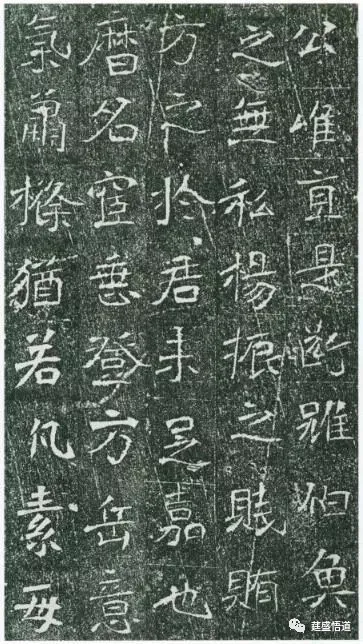 公唯直是斷雖伯魚
之無私楊振之賤賄
方之於君未足嘉也
曆名宦垂登方岳意
氣蕭條猶若凡素每
莛盛悟道